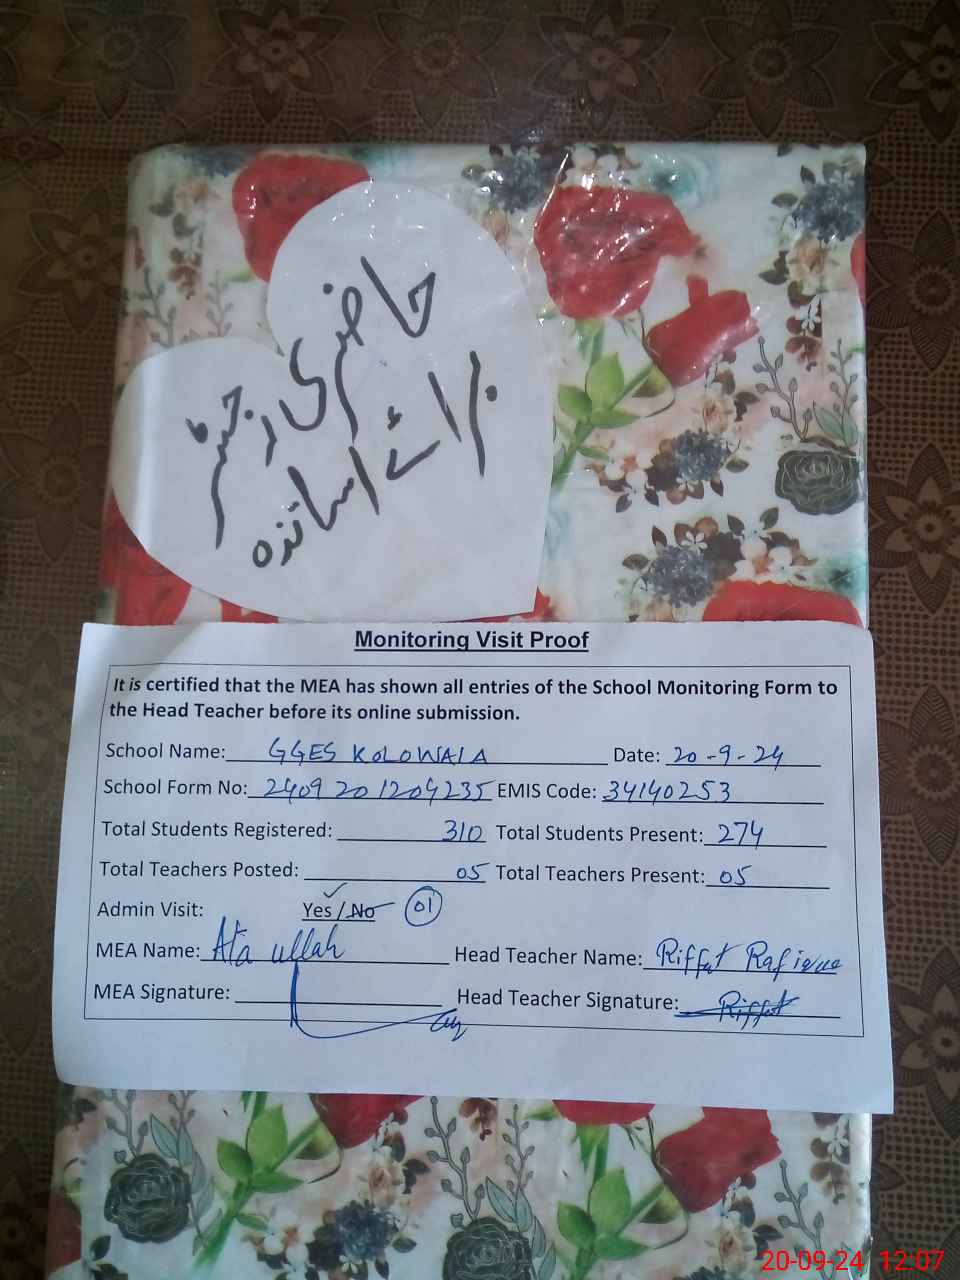 حاضری رجسٹر
برائے اساتذہ
Monitoring Visit Proof
It is certified that the MEA has shown all entries of the School Monitoring Form to
the Head Teacher before its online submission.
School Name: GGES KOLOWALA Date: 20-9-24
School Form No: 2409201204235 EMIS Code: 34140253
Total Students Registered: 310 Total Students Present: 274
Total Teachers Posted: 05 Total Teachers Present: 05
Admin Visit: Yes / No 01
MEA Name: Ata ullah Head Teacher Name: Riffat Rafique
MEA Signature: Head Teacher Signature: Riffat
20-09-24 12:07